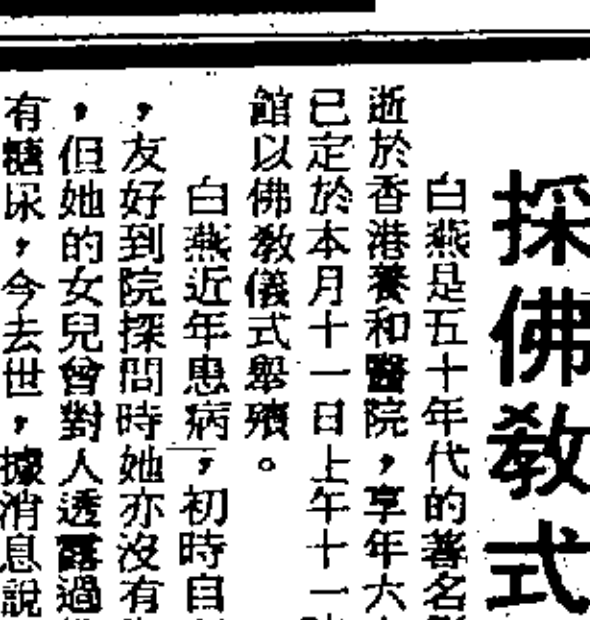 採佛教式
白燕是五十年代的著名
逝於香港養和醫院，享年六
已定於本月十一日上午十一
館以佛教儀式舉殯。
白燕近年患病，初時自
，友好到院探問時她亦沒有
，但她的女兒曾對人透露過
有糖尿，今去世，據消息說